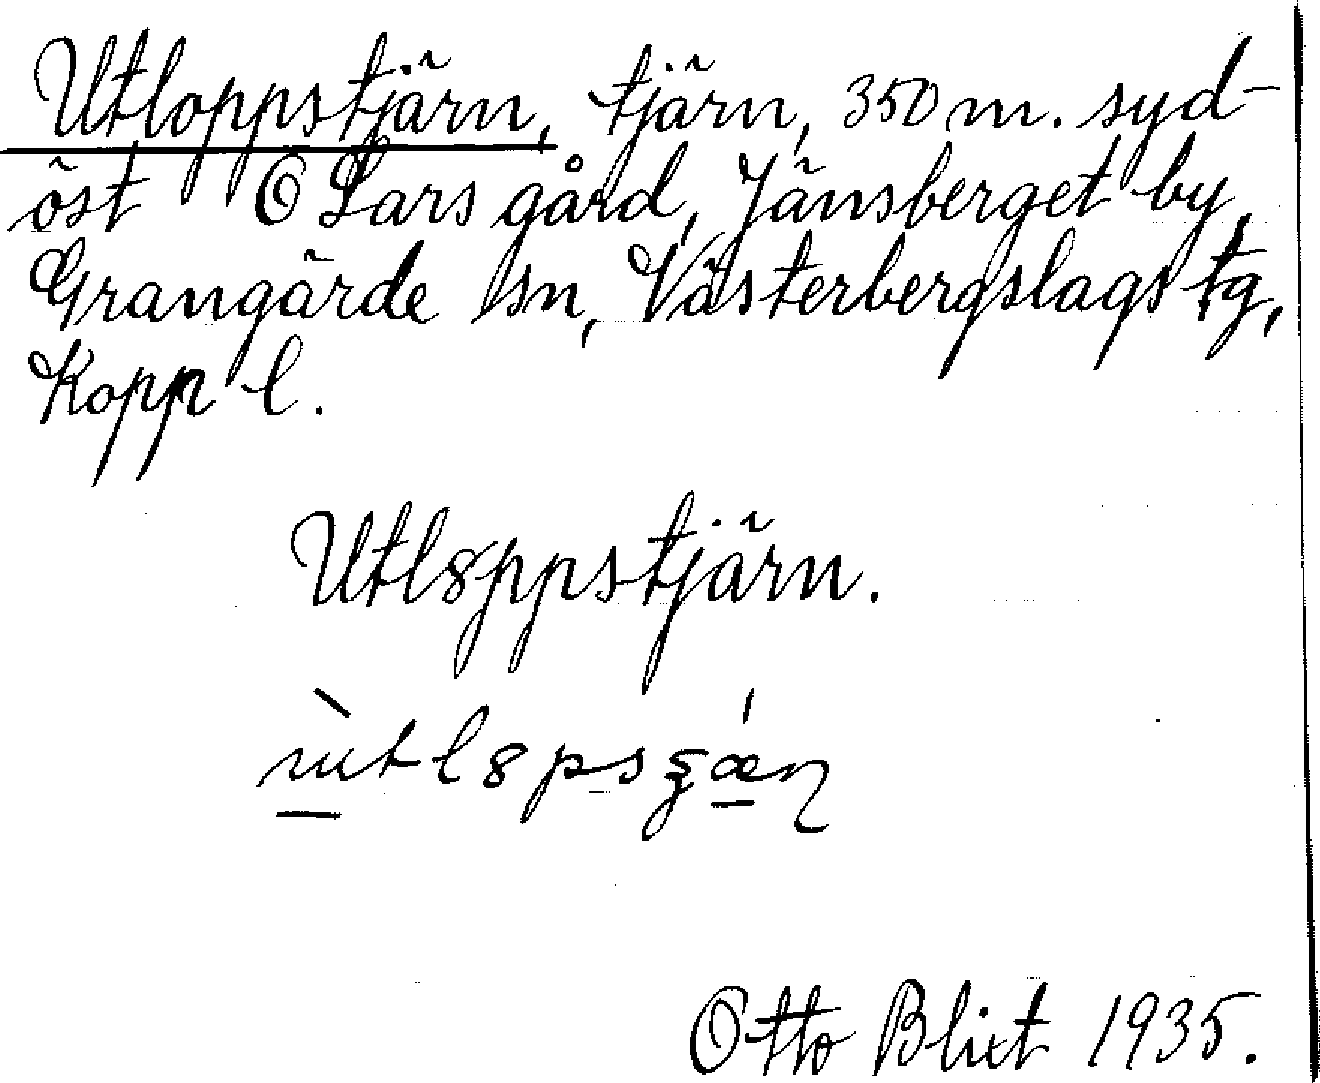 Utloppstjärn, tjärn, 350 m. syd-
öst O Lars gård, Jänsberget by,
Grangärde sn, Västerbergslags tg,
Kopp l.
Utlȣppstjärn.
Otto Blixt 1935.